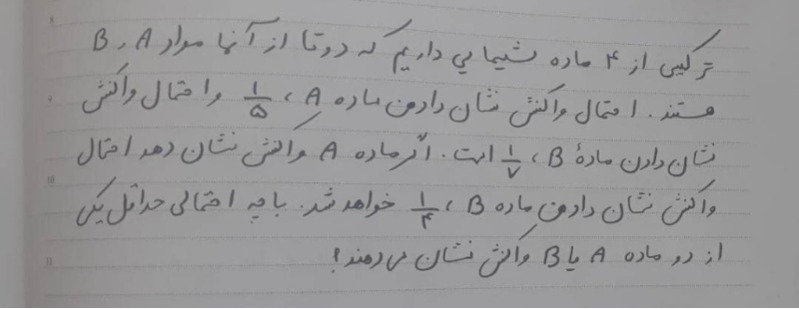 ترکیبی از ۴ ماده شیمیایی داریم که دوتا از آنها مواد A و B
هستند. احتمال واکنش نشان دادن ماده A ، ۱/۵ و احتمال واکنش
نشان دادن مادهٔ B ، ۱/۷ است. اگر ماده A واکنش نشان دهد احتمال
واکنش نشان دادن ماده B ، ۱/۴ خواهد شد. با چه احتمالی حداقل یکی
از دو ماده A یا B واکنش نشان می‌دهند؟